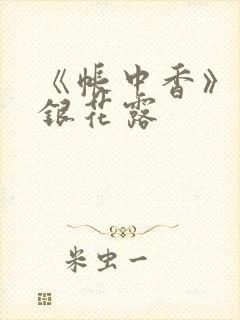 《帐中香》
银花露
米虫一